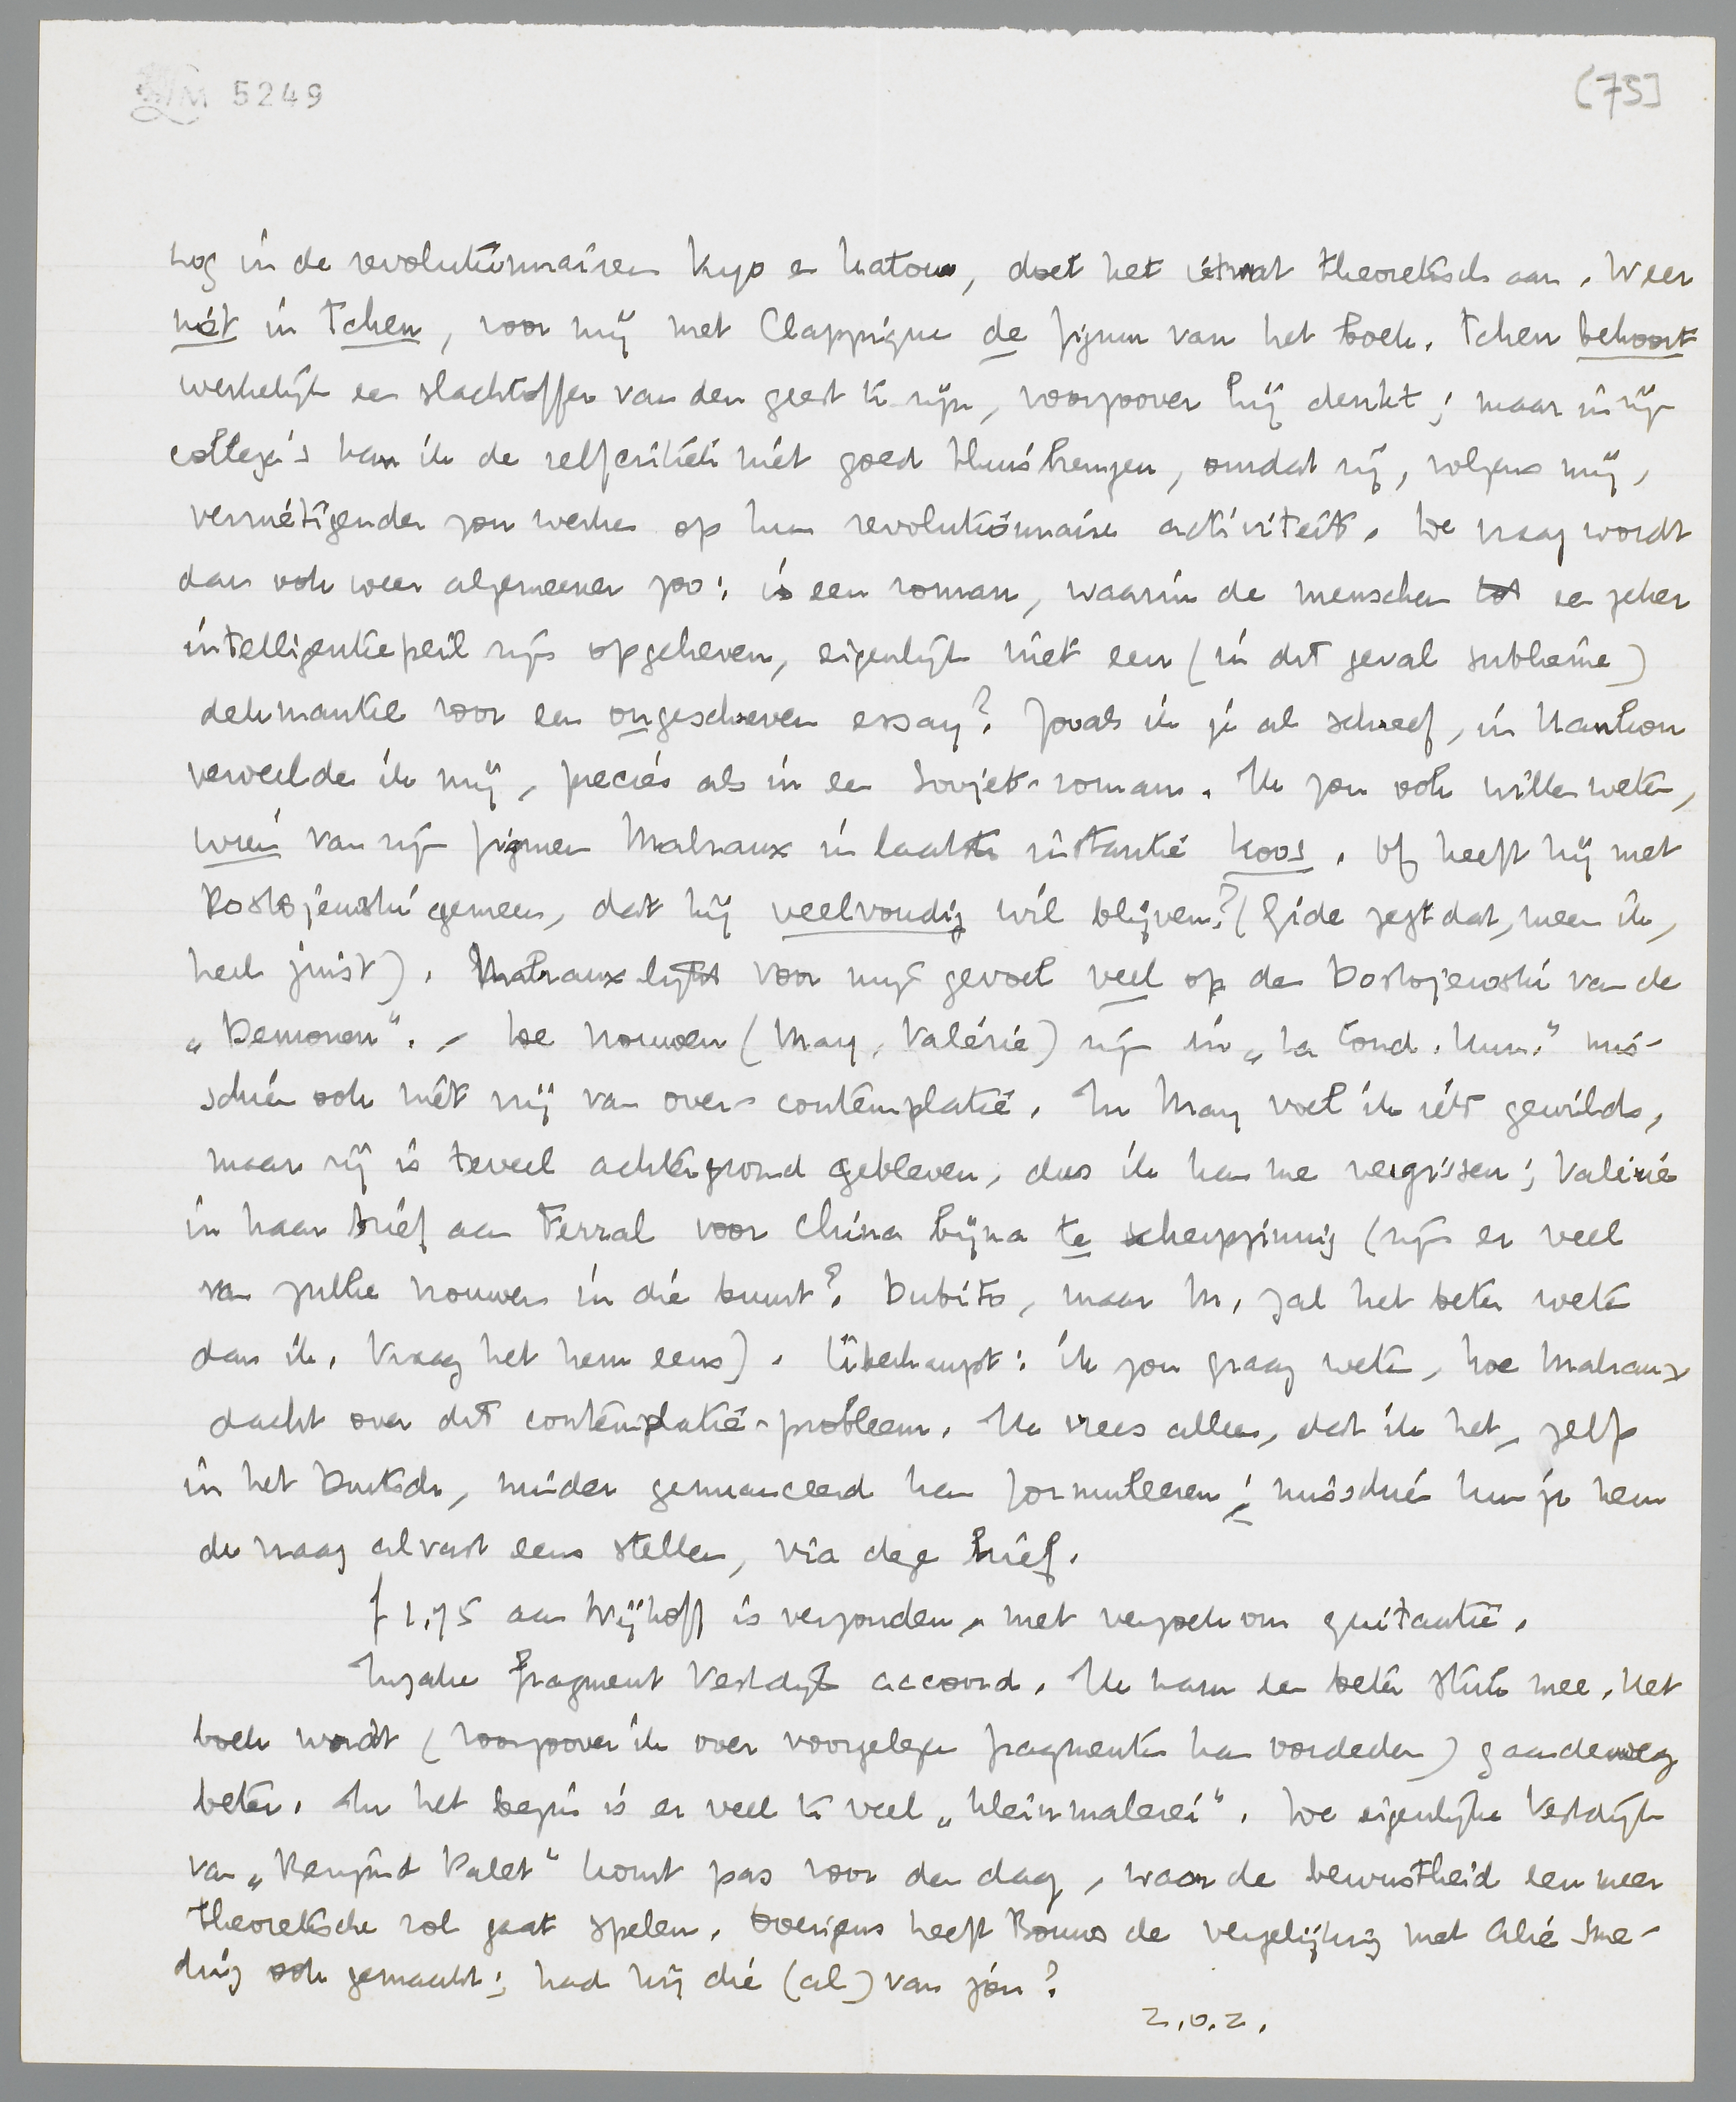 LM 5249
[75]
nog in de revolutionnairen Kyo en Katow, doet het ietwat theoretisch aan. Weer
niet in Tchen, voor mij met Clappique de figuur van het boek. Tchen behoort
werkelijk een slachtoffer van den geest te zijn, voorzoover hij denkt; maar in zijn
collega's kan ik de zelfcritiek niet goed thuisbrengen, omdat zij, volgens mij,
vernietigender zou werken op hun revolutionnaire activiteit. De vraag wordt
dan ook weer algemeener zoo: is een roman, waarin de menschen tot een zeker
intelligentiepeil zijn opgeheven, eigenlijk niet een (in dit geval sublieme)
dekmantel voor een ongeschreven essay? Zooals ik je al schreef, in Kanton
verveelde ik mij, precies als in een Sovjet-roman. Ik zou ook willen weten,
wien van zijn figuren Malraux in laatste instantie koos. Of heeft hij met
Dostojewski gemeen, dat hij veelvoudig wil blijven? (Gide zegt dat, meen ik,
heel juist). Malraux lijkt voor mijn gevoel veel op den Dostojewski van de
„Demonen". - De vrouwen (May, Valérie) zijn in „La Cond. Hum." mis-
schien ook niet vrij van over-contemplatie. In May voel ik iets gewilds,
maar zij is teveel achtergrond gebleven, dus ik kan me vergissen; Valérie
in haar brief aan Ferral voor China bijna te scherpzinnig (zijn er veel
van zulke vrouwen in die buurt? Dubito, maar M. zal het beter weten
dan ik. Vraag het hem eens). Überhaupt: ik zou graag weten, hoe Malraux
dacht over dit contemplatie-probleem. Ik vrees alleen, dat ik het, zelfs
in het Duitsch, minder genuanceerd kan formuleeren; misschien kun je hem
de vraag alvast eens stellen, via deze brief.
f 1.75 aan Nijhoff is verzonden, met verzoek om quitantie.
Inzake fragment Vestdijk accoord. Ik kwam een beter stuk mee. Het
boek wordt (voorzoover ik over voorgelezen fragmenten kan oordeelen) gaandeweg
beter. In het begin is er veel te veel „Kleinmalerei". De eigenlijke Vestdijk
van „Berijmd Palet" komt pas voor den dag, waar de bewustheid een meer
theoretische rol gaat spelen. Overigens heeft Bouws de vergelijking met Alie Sme-
ding ook gemaakt; had hij die (al) van jou?
z.o.z.